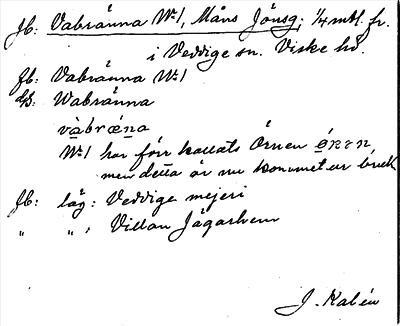 Jb: Vabränna No 1, Måns Jönsg; 1/4 mtl. fr.
i Veddige sn. Viske hd.
Jb: Vabränna No 1
Wabränna
vàbrǽna
No 1 har förr kallats Örnen
men detta är nu kommet ur bruk
Jb: läg: Veddige mejeri
" " , Villan Jägarhem
J. Kalén